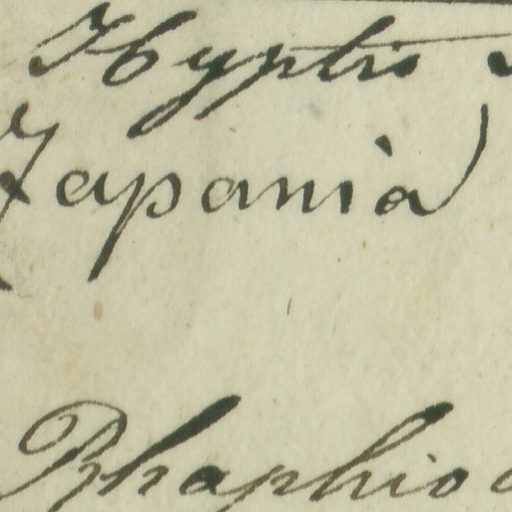 Hyptis
Zapania)
Rhaphio